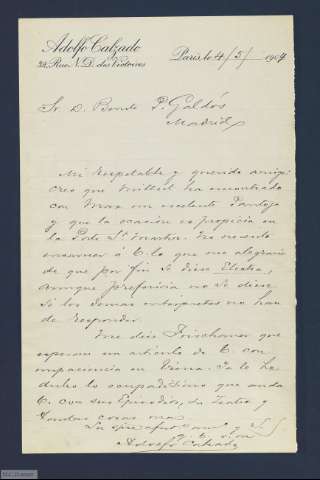 Adolfo Calzado
32, Rue N.D. des Victoires
Paris, le 4/3/ 1904
Sr. D. Benito P. Galdós
Madrid
Mi respetable y querido amigo:
Creo que Milliet ha encontrado
con Max un excelente Pantoja
y que la ocasión es propicia en
la Porte St. Martin. No necesito
encarecer á V. lo que me alegraría
de que por fin se diese Electra,
aunque preferiria no se diese
si los demas intérpretes no han
de responder.
Me dice Frischauer que
esperan un artículo de V. con
impaciencia en Viena. Ya le he
dicho lo ocupadísimo que anda
V. con sus Episodios, su Teatro y
tantas cosas mas.
Su afmo. y S.S.
Adolfo Calzado